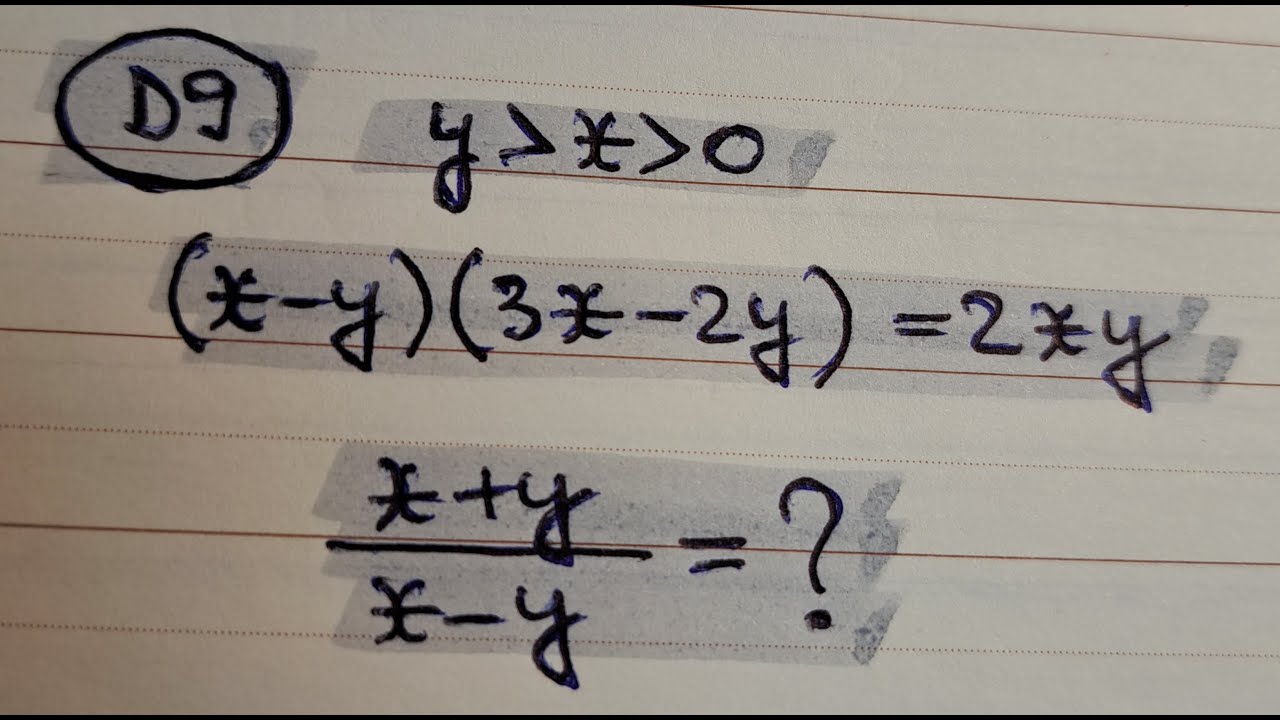 D9
y > x > 0
(x - y)(3x - 2y) = 2xy
x + y
x - y = ?